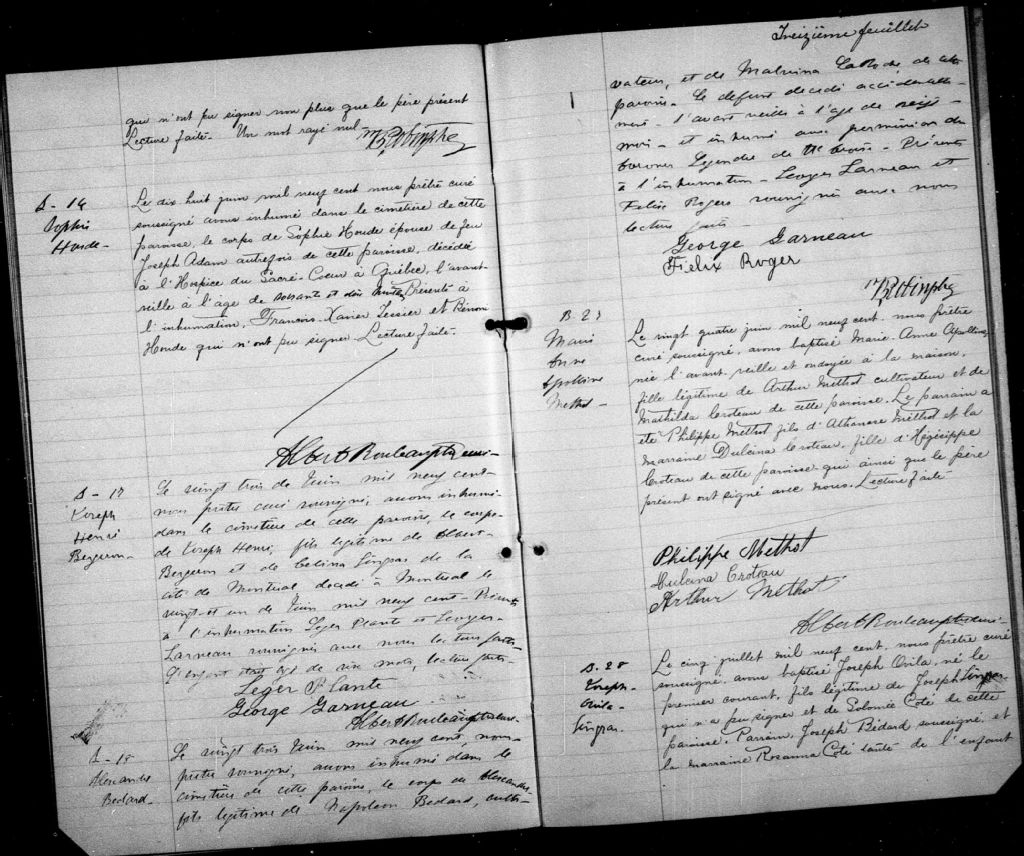 que n'ont pu signer non plus que le père présent
Lecture faite. Un mot rayé nul.
S - 16
Sophie
Houde -
Le dix huit juin mil neuf cent nous prêtre curé
soussigné avons inhumé dans le cimetière de cette
paroisse, le corps de Sophie Houde épouse de feu
Joseph Adam autrefois de cette paroisse, décédée
à l'Hospice du Sacré-Coeur à Québec, l'avant-
veille à l'âge de soixante et dix Présents à
l'inhumation, François-Xavier Tessier et
Houde qui n'ont pu signer. Lecture faite.
Albert Rouleau ptre curé -
S - 17
Joseph
Henri
Bergeron -
Le vingt trois de Juin mil neuf cent
nous prêtre curé soussigné, avons inhumé
dans le cimetière de cette paroisse, le corps
de Joseph Henri, fils légitime de
Bergeron et de Celina Gingras de la
cité de Montreal décédé à Montreal le
vingt-et un de Juin mil neuf cent - Présents
à l'inhumation Leger Plante et Georges
Garneau soussignés avec nous lecture faite
L'enfant était âgé de six mois, lecture faite -
Leger Plante
George Garneau
Albert Rouleau ptre curé -
S - 18
Alexandre
Bedard -
Le vingt trois Juin mil neuf cent, nous
prêtre soussigné, avons inhumé dans le
cimetière de cette paroisse, le corps de Alexandre
fils légitime de Napoleon Bedard, culti-
Treizième feuillet
vateur, et de Malvina de cette
paroisse - Le defunt decedé accidentelle-
ment - l'avant veille à l'âge de
mois - et inhumé avec permission du
coroner Legendre de Ste Croix - Présents
à l'inhumation - Georges Garneau et
Felix Rogers soussignés avec nous
lecture faite -
George Garneau
Felix Roger
B 27
Marie
Anne
Apolline
Methot -
Le vingt quatre juin mil neuf cent, nous prêtre
curé soussigné, avons baptisé Marie-Anne Apolline,
née l'avant-veille et ondoyée à la maison,
fille légitime de Arthur Méthot cultivateur et de
Mathilda Croteau de cette paroisse. Le parrain a
été Philippe Méthot fils d'Athanase Méthot et la
marraine Dulcina Croteau, fille d'Hégésippe
Croteau de cette paroisse qui ainsi que le père
présent ont signé avec nous. Lecture faite
Philippe Methot
Dulcina Croteau
Arthur Methot
Albert Rouleau ptre curé -
B. 28
Joseph-
Ovila-
Gingras.
Le cinq juillet mil neuf cent, nous prêtre curé
soussigné, avons baptisé Joseph Ovila, né le
premier courant, fils légitime de Joseph Gingras
qui n'a pu signer et de Salomée Coté de cette
paroisse. Parrain Joseph Bédard soussigné, et
la marraine Rosanna Coté tante de l'enfant